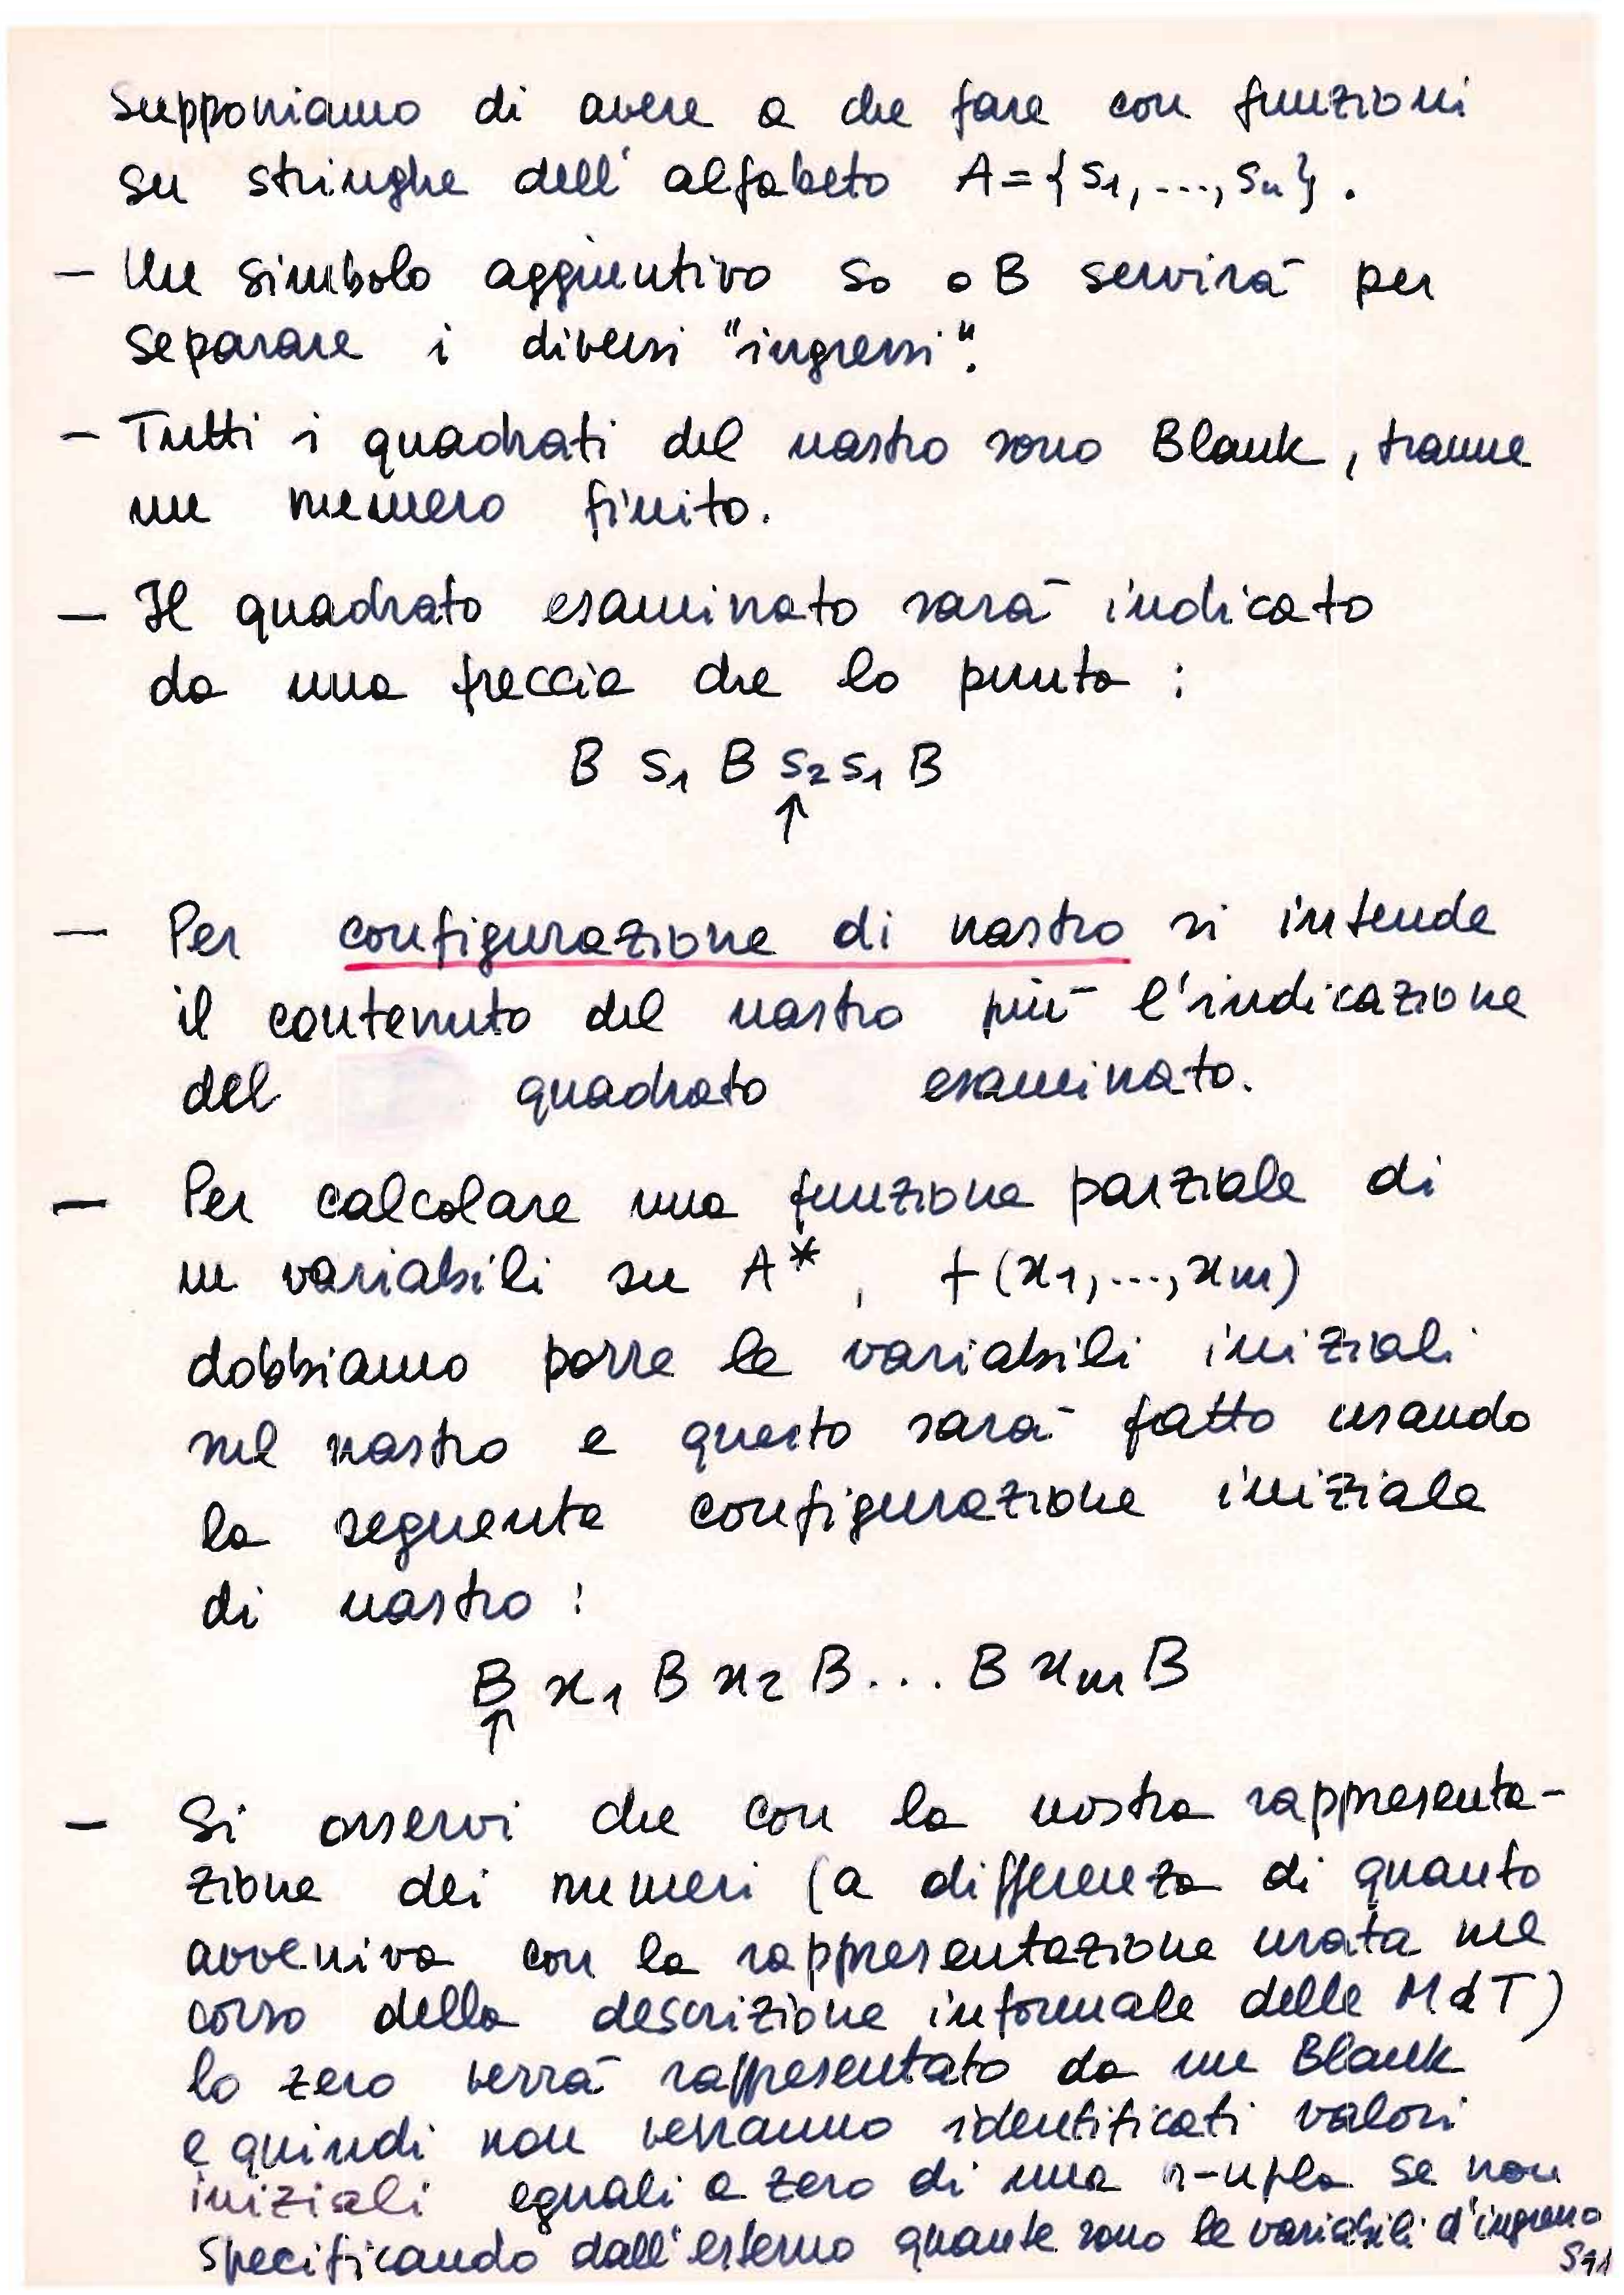 Supponiamo di avere a che fare con funzioni
su stringhe dell'alfabeto A={s1,...,sn}.
- Un simbolo aggiuntivo s0 o B servirà per
separare i diversi "ingressi".
- Tutti i quadrati del nastro sono Blank, tranne
un numero finito.
- Il quadrato esaminato sarà indicato
da una freccia che lo punta :
B s1 B s2 s1 B
↑
- Per configurazione di nastro si intende
il contenuto del nastro più l'indicazione
del quadrato esaminato.
- Per calcolare una funzione parziale di
m variabili su A*, f(x1,...,xm)
dobbiamo porre le variabili iniziali
nel nastro e questo sarà fatto usando
la seguente configurazione iniziale
di nastro :
B x1 B x2 B... B xm B
↑
- Si osservi che con la nostra rappresenta-
zione dei numeri (a differenza di quanto
avveniva con la rappresentazione usata nel
corso della descrizione informale delle MdT)
lo zero verrà rappresentato da un Blank
e quindi non verranno identificati valori
iniziali eguali a zero di una n-upla se non
specificando dall'esterno quante sono le variabili d'ingresso